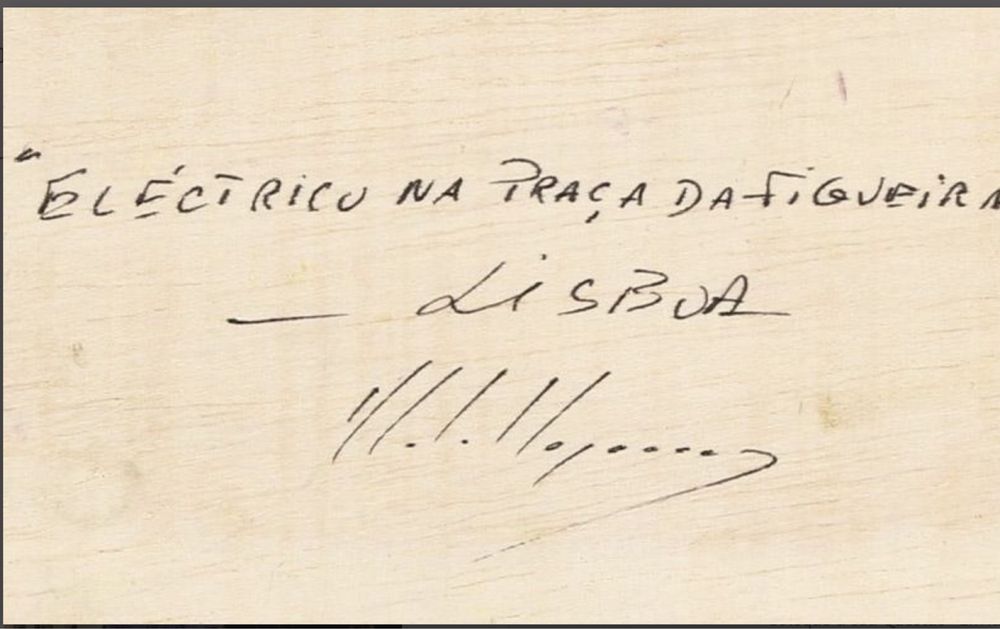 "ELÉCTRICO NA PRAÇA DA FIGUEIRA
— LISBOA